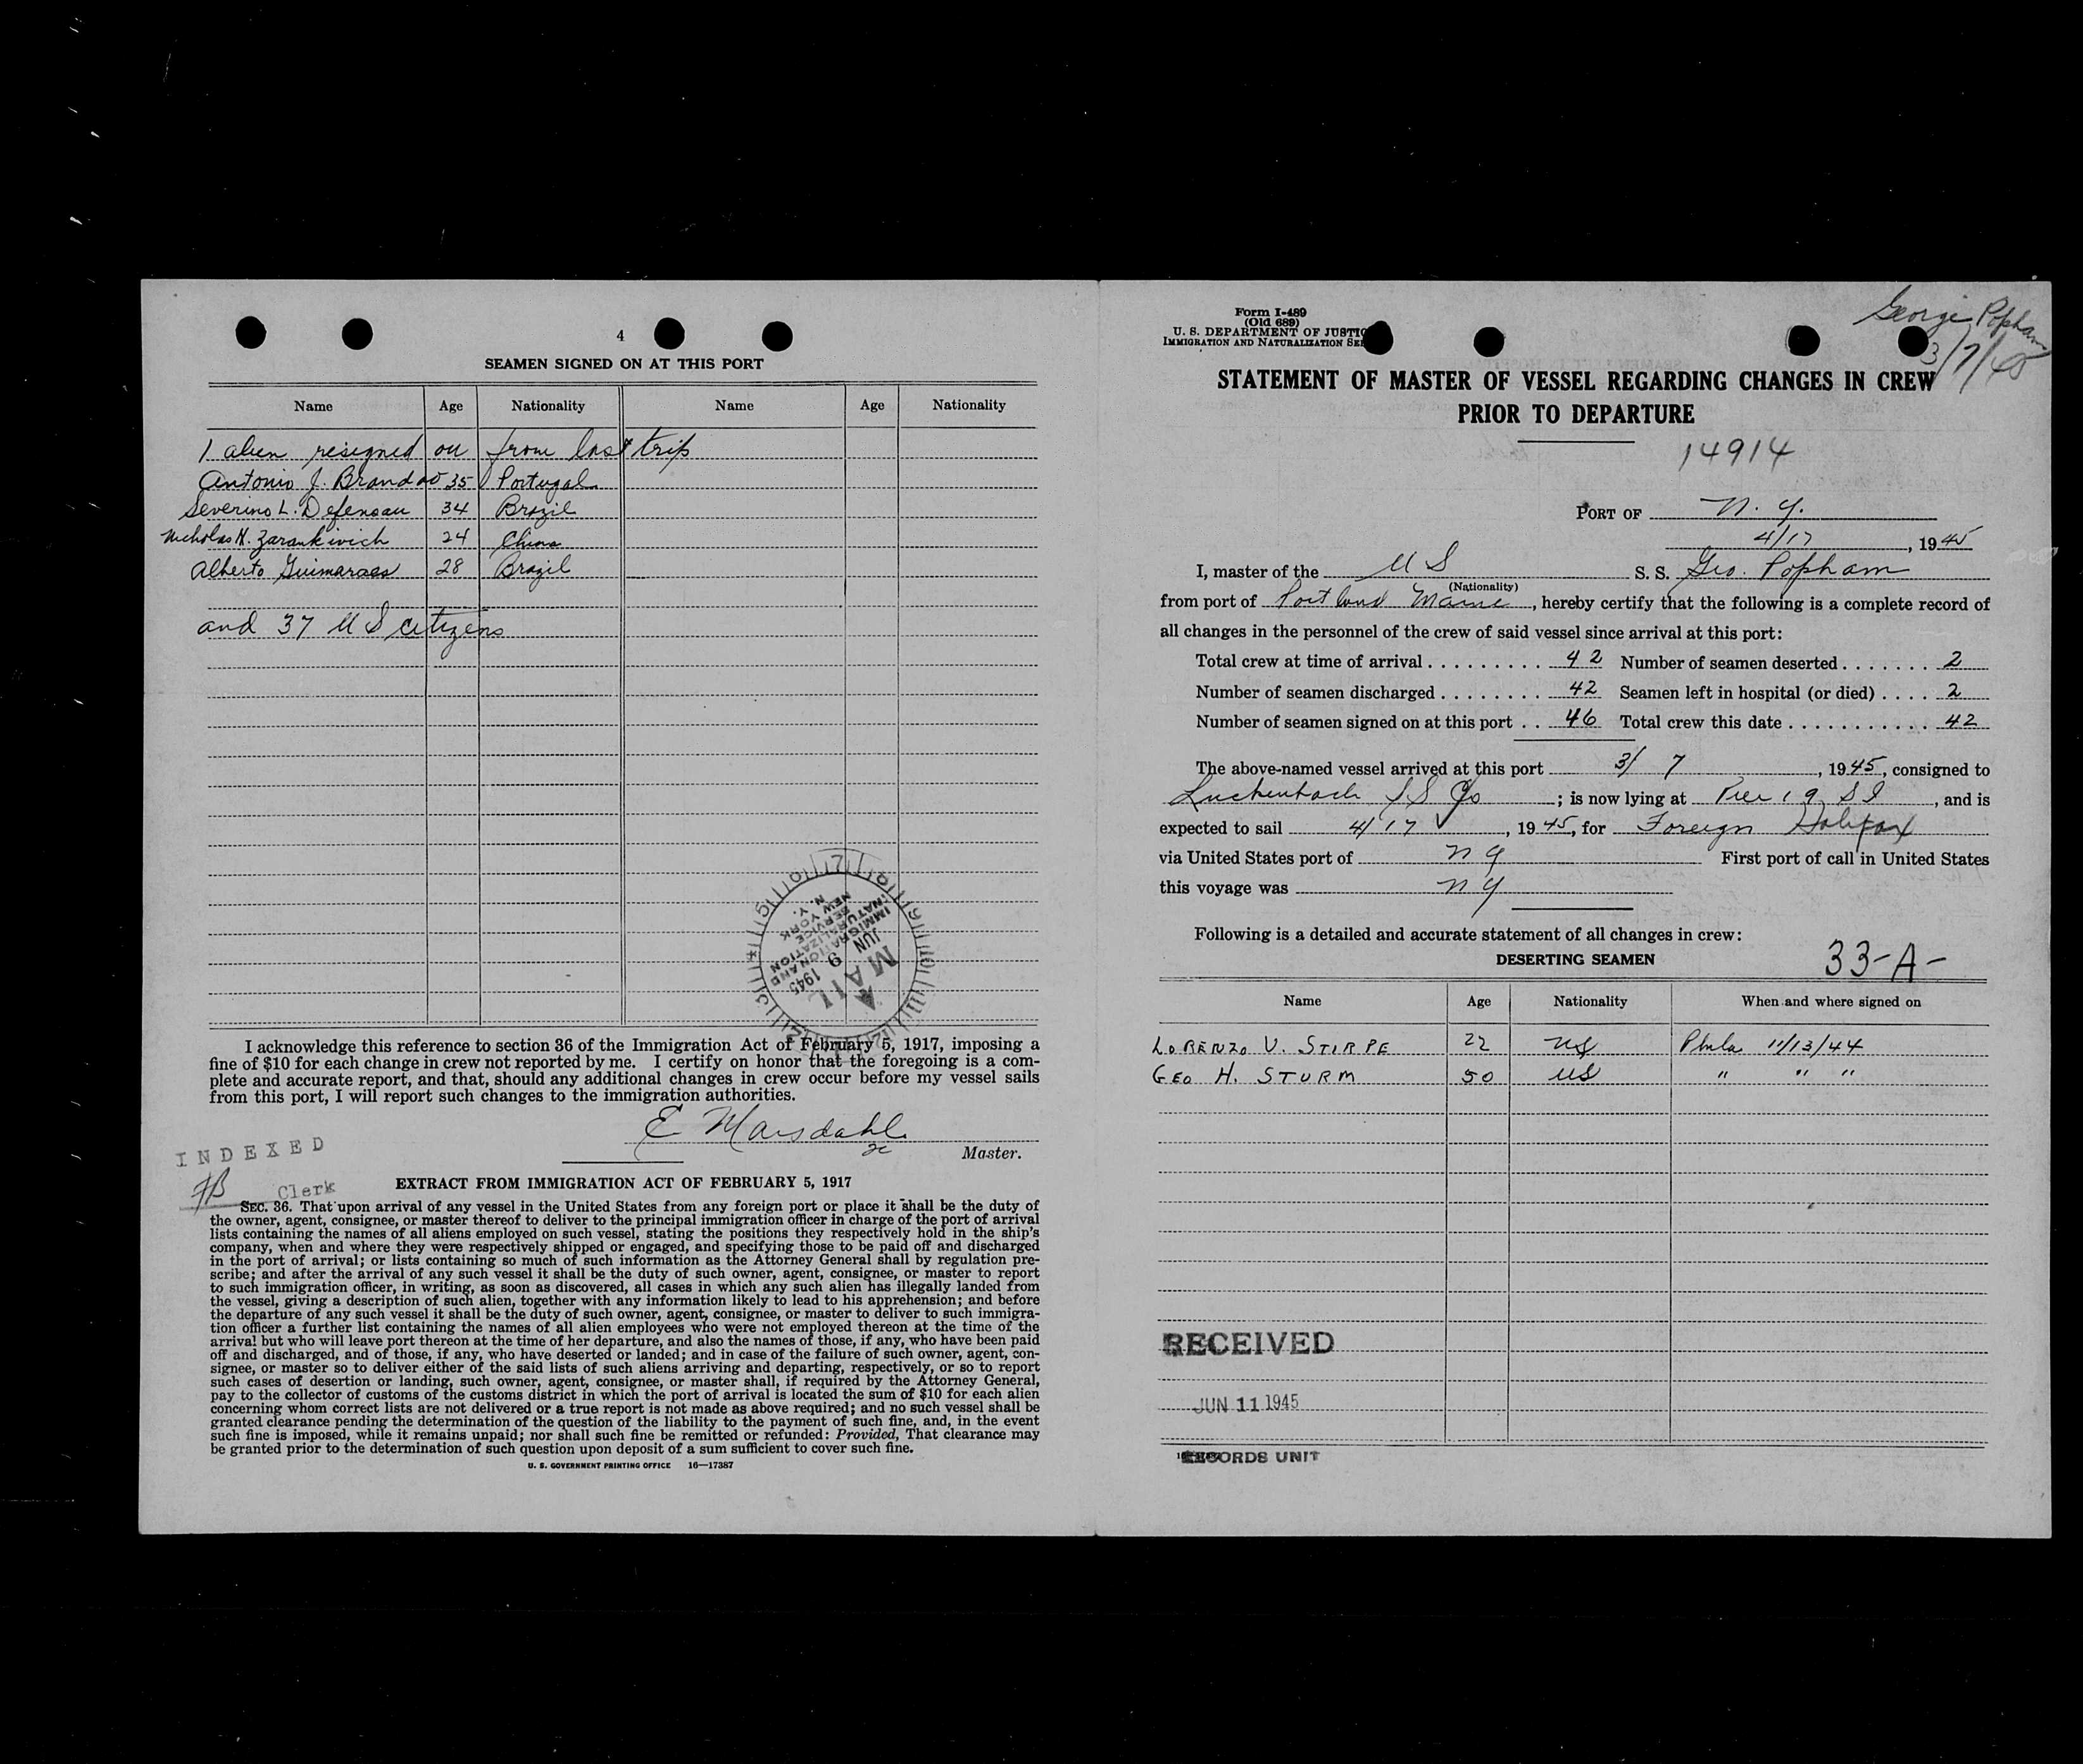 4
SEAMEN SIGNED ON AT THIS PORT
Name Age Nationality Name Age Nationality
1 alien resigned on from last trip
Antonio J. Brandao 35 Portugal
Severino L. Defensau 34 Brazil
Nicholas N. Zarankivich 24 China
Alberto Guimaraes 28 Brazil
and 37 U S citizens
IMMIGRATION AND
NATURALIZATION
SERVICE
NEW YORK
N. Y.
JUN 9 1945
MAIL
I acknowledge this reference to section 36 of the Immigration Act of February 5, 1917, imposing a
fine of $10 for each change in crew not reported by me. I certify on honor that the foregoing is a com-
plete and accurate report, and that, should any additional changes in crew occur before my vessel sails
from this port, I will report such changes to the immigration authorities.
E Marsdahl
Master.
INDEXED
Clerk
EXTRACT FROM IMMIGRATION ACT OF FEBRUARY 5, 1917
SEC. 36. That upon arrival of any vessel in the United States from any foreign port or place it shall be the duty of
the owner, agent, consignee, or master thereof to deliver to the principal immigration officer in charge of the port of arrival
lists containing the names of all aliens employed on such vessel, stating the positions they respectively hold in the ship's
company, when and where they were respectively shipped or engaged, and specifying those to be paid off and discharged
in the port of arrival; or lists containing so much of such information as the Attorney General shall by regulation pre-
scribe; and after the arrival of any such vessel it shall be the duty of such owner, agent, consignee, or master to report
to such immigration officer, in writing, as soon as discovered, all cases in which any such alien has illegally landed from
the vessel, giving a description of such alien, together with any information likely to lead to his apprehension; and before
the departure of any such vessel it shall be the duty of such owner, agent, consignee, or master to deliver to such immigra-
tion officer a further list containing the names of all alien employees who were not employed thereon at the time of the
arrival but who will leave port thereon at the time of her departure, and also the names of those, if any, who have been paid
off and discharged, and of those, if any, who have deserted or landed; and in case of the failure of such owner, agent, con-
signee, or master so to deliver either of the said lists of such aliens arriving and departing, respectively, or so to report
such cases of desertion or landing, such owner, agent, consignee, or master shall, if required by the Attorney General,
pay to the collector of customs of the customs district in which the port of arrival is located the sum of $10 for each alien
concerning whom correct lists are not delivered or a true report is not made as above required; and no such vessel shall be
granted clearance pending the determination of the question of the liability to the payment of such fine, and, in the event
such fine is imposed, while it remains unpaid; nor shall such fine be remitted or refunded: Provided, That clearance may
be granted prior to the determination of such question upon deposit of a sum sufficient to cover such fine.
U. S. GOVERNMENT PRINTING OFFICE 16—17387
Form I-489
(Old 689)
U. S. DEPARTMENT OF JUSTIC
IMMIGRATION AND NATURALIZATION SE
George Popham
3/7/45
STATEMENT OF MASTER OF VESSEL REGARDING CHANGES IN CREW
PRIOR TO DEPARTURE
14914
PORT OF N. Y.
4/17, 1945
I, master of the U S S. S. Geo. Popham
(Nationality)
from port of Portland Maine, hereby certify that the following is a complete record of
all changes in the personnel of the crew of said vessel since arrival at this port:
Total crew at time of arrival 42 Number of seamen deserted 2
Number of seamen discharged 42 Seamen left in hospital (or died) 2
Number of seamen signed on at this port 46 Total crew this date 42
The above-named vessel arrived at this port 3/7, 1945, consigned to
Luckenbach S S Co; is now lying at Pier 19 S I, and is
expected to sail 4/17, 1945, for Foreign Halifax
via United States port of N Y First port of call in United States
this voyage was N Y
Following is a detailed and accurate statement of all changes in crew:
DESERTING SEAMEN
33-A-
Name Age Nationality When and where signed on
LORENZO V. STIRPE 22 US Phila 11/13/44
GEO H. STURM 50 US " " "
RECEIVED
JUN 11 1945
RECORDS UNIT